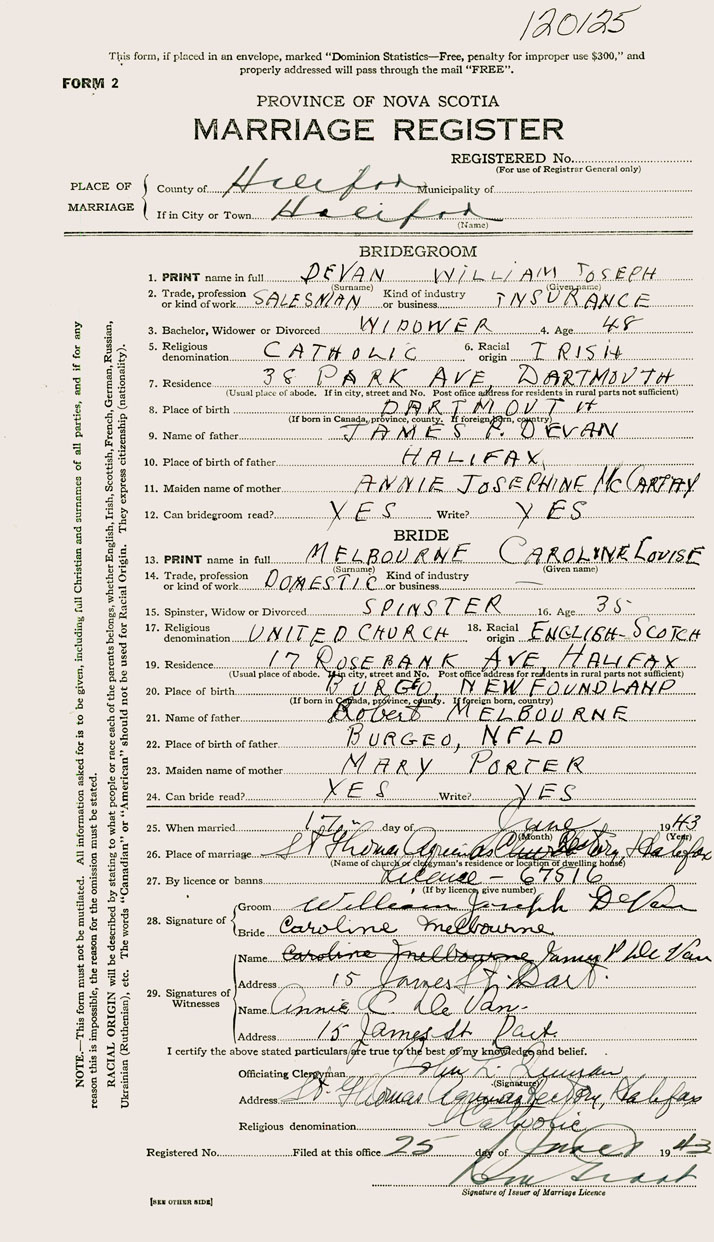 120125
This form, if placed in an envelope, marked "Dominion Statistics—Free, penalty for improper use $300," and
properly addressed will pass through the mail "FREE".
FORM 2
PROVINCE OF NOVA SCOTIA
MARRIAGE REGISTER
REGISTERED No.
(For use of Registrar General only)
PLACE OF MARRIAGE
County of Halifax Municipality of
If in City or Town Halifax
(Name)
BRIDEGROOM
1. PRINT name in full DEVAN WILLIAM JOSEPH
(Surname) (Given name)
2. Trade, profession or kind of work SALESMAN Kind of industry or business INSURANCE
3. Bachelor, Widower or Divorced WIDOWER 4. Age 48
5. Religious denomination CATHOLIC 6. Racial origin IRISH
7. Residence 38 PARK AVE, DARTMOUTH
(Usual place of abode. If in city, street and No. Post office address for residents in rural parts not sufficient)
8. Place of birth DARTMOUTH
(If born in Canada, province, county. If foreign born, country)
9. Name of father JAMES P. DEVAN
10. Place of birth of father HALIFAX
11. Maiden name of mother ANNIE JOSEPHINE McCARTHY
12. Can bridegroom read? YES Write? YES
BRIDE
13. PRINT name in full MELBOURNE CAROLINE LOUISE
(Surname) (Given name)
14. Trade, profession or kind of work DOMESTIC Kind of industry or business —
15. Spinster, Widow or Divorced SPINSTER 16. Age 35
17. Religious denomination UNITED CHURCH 18. Racial origin ENGLISH-SCOTCH
19. Residence 17 ROSEBANK AVE, HALIFAX
(Usual place of abode. If in city, street and No. Post office address for residents in rural parts not sufficient)
20. Place of birth BURGEO, NEWFOUNDLAND
(If born in Canada, province, county. If foreign born, country)
21. Name of father Robert MELBOURNE
22. Place of birth of father BURGEO, NFLD
23. Maiden name of mother MARY PORTER
24. Can bride read? YES Write? YES
25. When married 17 day of June 1943
(Month) (Year)
26. Place of marriage St Thomas Aquinas Rectory, Halifax
(Name of church or clergyman's residence or location of dwelling house)
27. By licence or banns Licence - 67516
(If by licence, give number)
28. Signature of
Groom William Joseph DeVan
Bride Caroline Melbourne
29. Signatures of Witnesses
Name Caroline Melbourne James P De Van
Address 15 James St. Dart.
Name Annie C. De Van
Address 15 James St Dart.
I certify the above stated particulars are true to the best of my knowledge and belief.
Officiating Clergyman
(Signature)
Address St. Thomas Aquinas Rectory, Halifax
Religious denomination Catholic
Registered No. Filed at this office 25 day of June 1943
Signature of Issuer of Marriage Licence
[SEE OTHER SIDE]
NOTE.—This form must not be mutilated. All information asked for is to be given, including full Christian and surnames of all parties, and if for any
reason this is impossible, the reason for the omission must be stated.
RACIAL ORIGIN will be described by stating to what people or race each of the parents belongs, whether English, Irish, Scottish, French, German, Russian,
Ukrainian (Ruthenian), etc. The words "Canadian" or "American" should not be used for Racial Origin. They express citizenship (nationality).